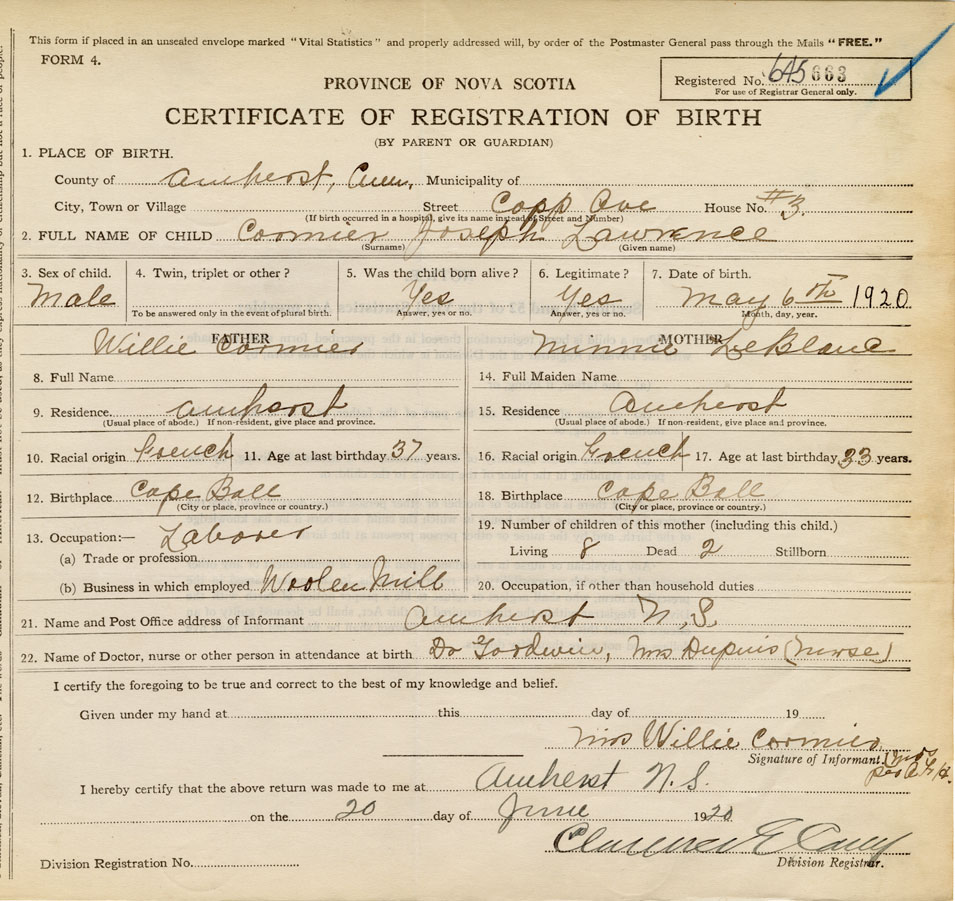 This form if placed in an unsealed envelope marked "Vital Statistics" and properly addressed will, by order of the Postmaster General pass through the Mails "FREE."
FORM 4.
Registered No. 645663
For use of Registrar General only.
PROVINCE OF NOVA SCOTIA
CERTIFICATE OF REGISTRATION OF BIRTH
(BY PARENT OR GUARDIAN)
1. PLACE OF BIRTH.
County of Amherst, Cum, Municipality of
City, Town or Village Street Copp Ave House No. #3.
(If birth occurred in a hospital, give its name instead of Street and Number)
2. FULL NAME OF CHILD Cormier Joseph Lawrence
(Surname) (Given name)
3. Sex of child. 4. Twin, triplet or other? 5. Was the child born alive? 6. Legitimate? 7. Date of birth.
Male Yes Yes May 6th 1920
To be answered only in the event of plural birth. Answer, yes or no. Answer, yes or no. Month, day, year.
FATHER MOTHER
Willie Cormier Minnie LeBlanc
8. Full Name 14. Full Maiden Name
9. Residence Amherst 15. Residence Amherst
(Usual place of abode.) If non-resident, give place and province. (Usual place of abode.) If non-resident, give place and province.
10. Racial origin French 11. Age at last birthday 37 years. 16. Racial origin French 17. Age at last birthday 33 years.
12. Birthplace Cape Ball 18. Birthplace Cape Ball
(City or place, province or country.) (City or place, province or country.)
13. Occupation:— Laborer 19. Number of children of this mother (including this child.)
(a) Trade or profession Living 8 Dead 2 Stillborn
(b) Business in which employed Woolen Mill 20. Occupation, if other than household duties
21. Name and Post Office address of Informant Amherst N.S.
22. Name of Doctor, nurse or other person in attendance at birth Dr Goodwin, Mrs Dupuis (Nurse)
I certify the foregoing to be true and correct to the best of my knowledge and belief.
Given under my hand at this day of 19
Mrs Willie Cormier
Signature of Informant.
I hereby certify that the above return was made to me at Amherst N.S.
on the 20 day of June 1920
Division Registration No. Division Registrar.